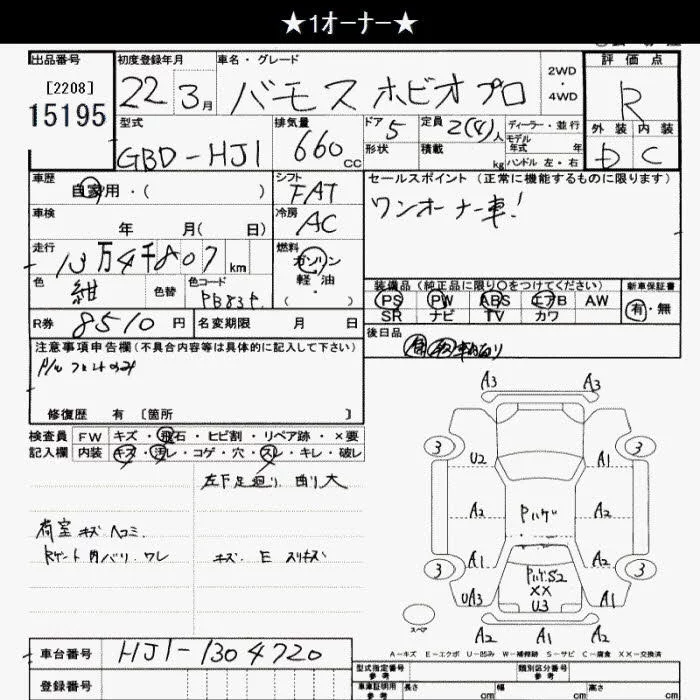 ★1オーナー★
出品番号
[2208]
15195
初度登録年月
22 3月
車名・グレード
バモス ホビオ プロ
2WD
・
4WD
評価点
R
外装 内装
D C
型式
GBD-HJ1
排気量
660 cc
ドア 5
形状
定員 2(4)人
積載 kg
ディーラー・並行
モデル年式 年
ハンドル 左・右
車歴
自家用・( )
シフト
FAT
セールスポイント(正常に機能するものに限ります)
ワンオーナー車!
車検
年 月( 日)
冷房
AC
走行
13万4千807km
燃料
ガソリン
軽油
( ・ )
色
紺
色替
色コード
装備品(純正品に限り○をつけてください)
PS PW ABS エアB AW
SR ナビ TV カワ
新車保証書
有・無
R券 8510円
名変期限 月 日
後日品
注意事項申告欄(不具合内容等は具体的に記入して下さい)
修復歴 有〔箇所 〕
検査員 FW キズ・飛石・ヒビ割・リペア跡・×要
記入欄 内装 キズ・汚レ・コゲ・穴・スレ・キレ・破レ
左下足廻り 曲り大
荷室 キズ ヘコミ.
Rゲート内バリ・ワレ
A3 A3
3 3
U2 A1
A2 A2
A1 A2
3 3
UA3 A1
A2 A1 A2
XX
U3
スペア
A-キズ E-エクボ U-凹み W-補修跡 S-サビ C-腐食 XX-交換済
車台番号 HJ1-1304720
登録番号
型式指定番号
参考
類別区分番号
参考
車庫証明用
参考
長さ cm
幅 cm
高さ cm